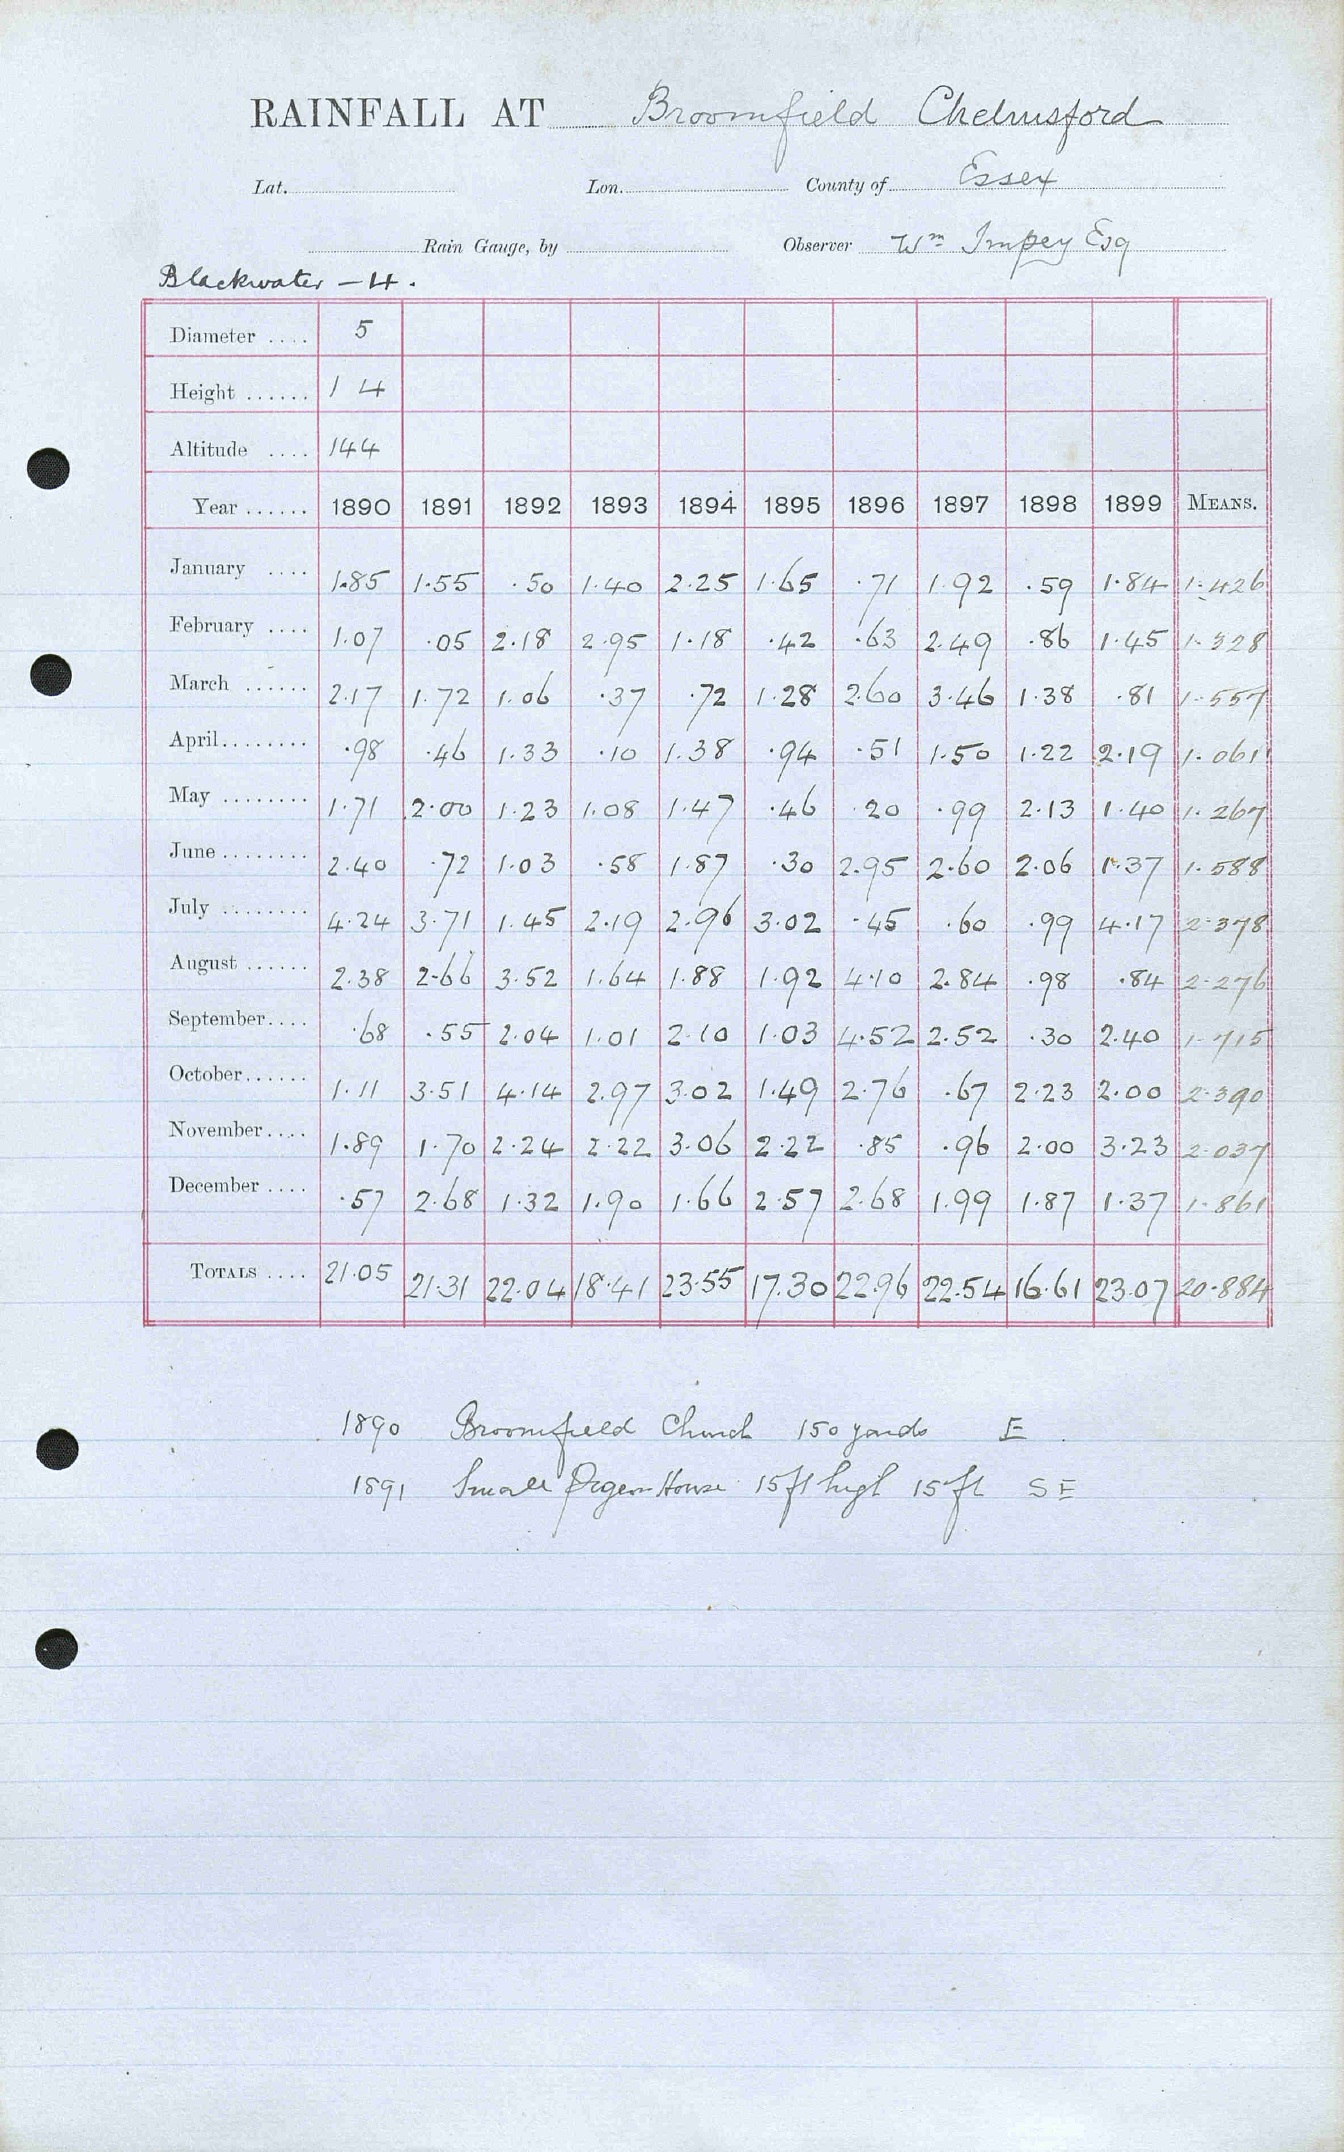 RAINFALL AT Broomfield Chelmsford
Lat. Lon. County of Essex
Rain Gauge, by Observer Wm Impey Esq
Blackwater – 4.
Diameter .... 5
Height ...... 1 4
Altitude .... 144
Year ...... 1890 1891 1892 1893 1894 1895 1896 1897 1898 1899 MEANS.
January .... 1.85 1.55 .50 1.40 2.25 1.65 .71 1.92 .59 1.84 1.426
February .... 1.07 .05 2.18 2.95 1.18 .42 .63 2.49 .86 1.45 1.328
March ...... 2.17 1.72 1.06 .37 .72 1.28 2.60 3.46 1.38 .81 1.557
April........ .98 .46 1.33 .10 1.38 .94 .51 1.50 1.22 2.19 1.061
May ........ 1.71 2.00 1.23 1.08 1.47 .46 .20 .99 2.13 1.40 1.267
June ........ 2.40 .72 1.03 .58 1.87 .30 2.95 2.60 2.06 1.37 1.588
July ........ 4.24 3.71 1.45 2.19 2.96 3.02 .45 .60 .99 4.17 2.378
August ...... 2.38 2.66 3.52 1.64 1.88 1.92 4.10 2.84 .98 .84 2.276
September.... .68 .55 2.04 1.01 2.10 1.03 4.52 2.52 .30 2.40 1.715
October...... 1.11 3.51 4.14 2.97 3.02 1.49 2.76 .67 2.23 2.00 2.390
November.... 1.89 1.70 2.24 2.22 3.06 2.22 .85 .96 2.00 3.23 2.037
December .... .57 2.68 1.32 1.90 1.66 2.57 2.68 1.99 1.87 1.37 1.861
TOTALS .... 21.05 21.31 22.04 18.41 23.55 17.30 22.96 22.54 16.61 23.07 20.884
1890 Broomfield Church 150 yards E
1891 Small Pigeon House 15 ft high 15 ft SE